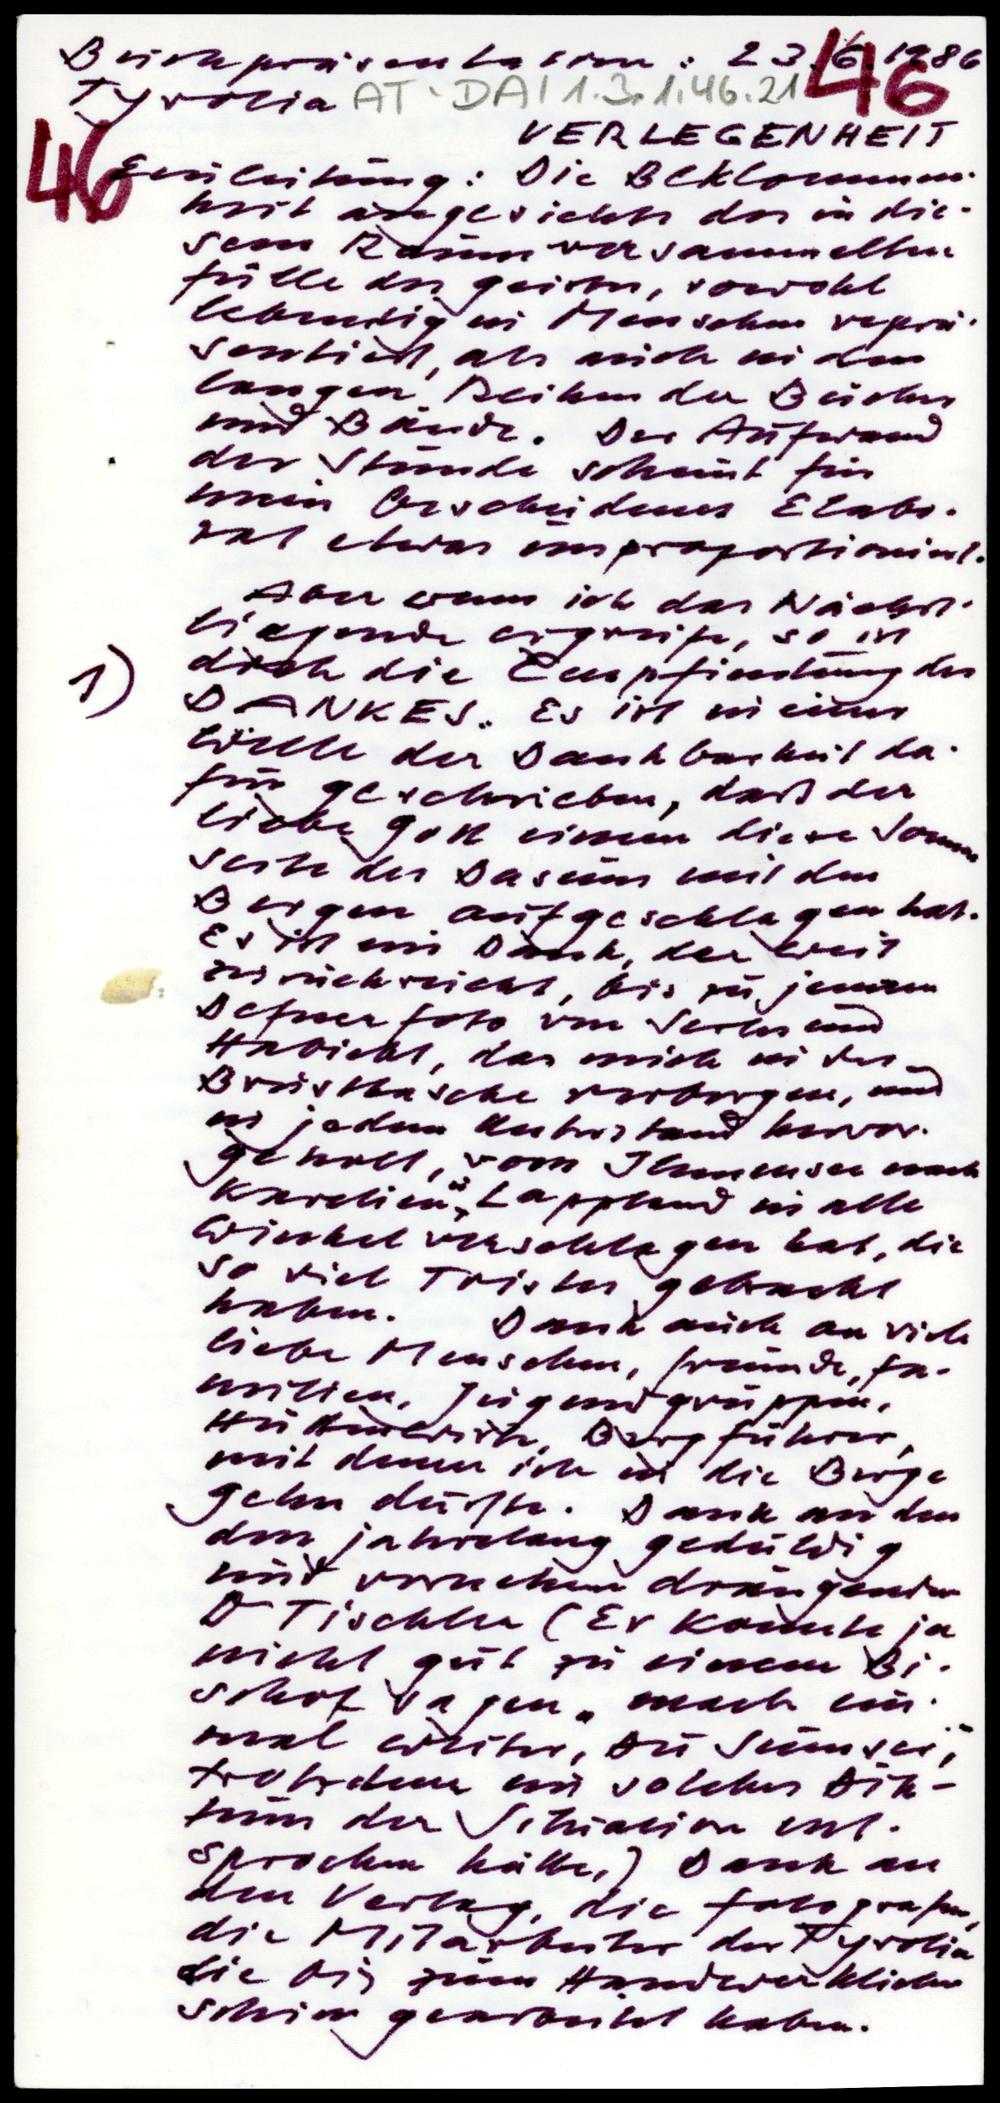 Buchpräsentation: 23.6.1986
Tyrolia AT-DAI 1.3.1.46.21 46
VERLEGENHEIT
46 Einleitung: Die Beklommen-
heit angesichts der in die-
sem Raum versammelten
Fülle des Geistes, sowohl
lebendig in Menschen reprä-
sentiert, als auch in den
langen Reihen der Bücher
und Bände. Der Aufwand
der Stunde scheint für
mein bescheidenes Elabo-
rat etwas unproportioniert.
Aber wenn ich das Nächst-
liegende ergreife, so ist
1) doch die Empfindung des
DANKES. Es ist in einer
Welle der Dankbarkeit da-
für geschrieben, daß der
liebe Gott einem diese Sonnen
seite des Daseins mit den
Bergen aufgeschlagen hat.
Es ist ein Dank, der weit
zurückreicht, bis zu jenem
Defnerfoto von Serles und
Habicht, das mich in der
Brusttasche verborgen, und
in jedem Unterstand hervor-
geholt, vom Ilmensee nach
Karelien, Lappland in alle
Winkel verschlagen hat, die
so viel Tristes gebracht
haben. Dank auch an viele
liebe Menschen, Freunde, Fa-
milien, Jugendgruppen,
Hüttenwirte, Bergführer,
mit denen ich in die Berge
gehn durfte. Dank an den
den jahrelang geduldig
und vornehm drängenden
D Tischler (Er konnte ja
nicht gut zu einem Bi-
schof sagen „mach ein-
mal weiter, du Sumser",
trotzdem ein solches Dik-
tum der Situation ent-
sprochen hätte.) Dank an
den Verlag, die Fotografen,
die Mitarbeiter der Tyrolia
die bis zum Handwerklichen
schön gearbeitet haben.